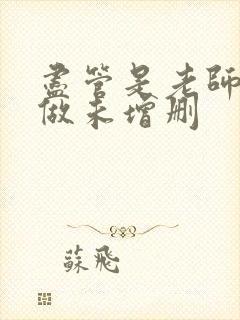 盡管是老師
做未增刪
蘇飛